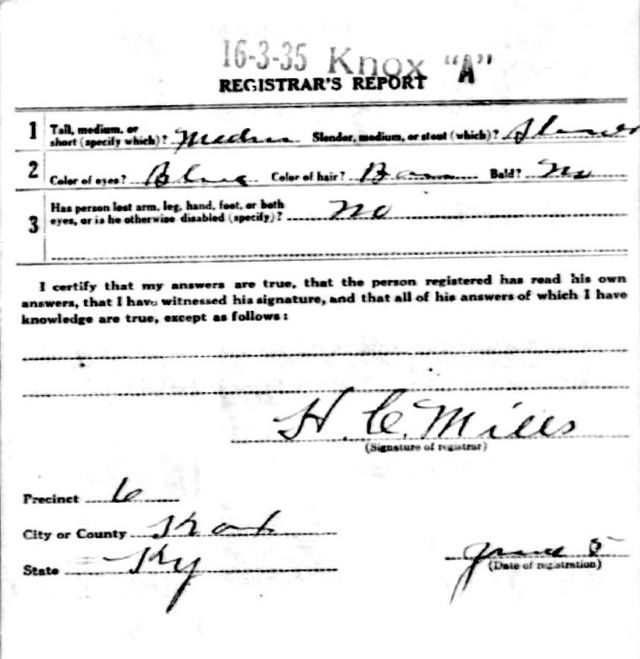 16-3-35 Knox "A"
REGISTRAR'S REPORT
1 Tall, medium, or short (specify which)? Medium Slender, medium, or stout (which)? Slender
2 Color of eyes? Blue Color of hair? Brown Bald? No
3 Has person lost arm, leg, hand, foot, or both
eyes, or is he otherwise disabled (specify)? No
I certify that my answers are true, that the person registered has read his own
answers, that I have witnessed his signature, and that all of his answers of which I have
knowledge are true, except as follows:
H. C. Mills
(Signature of registrar)
Precinct 6
City or County Knox
State Ky
June 5
(Date of registration)